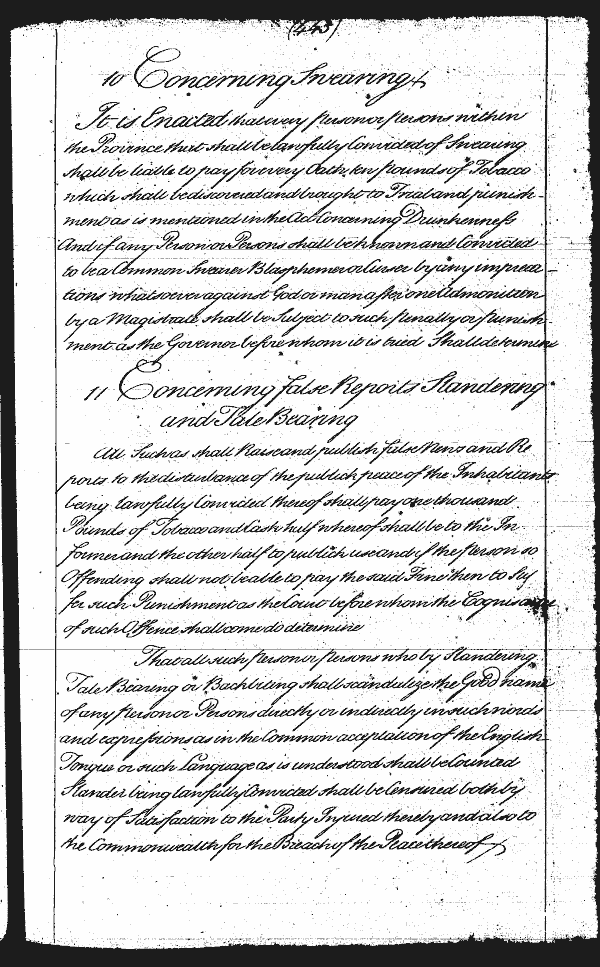 (445)
10 Concerning Swearing
It is Enacted that every person or persons within
the Province that shall be lawfully Convicted of Swearing
shall be liable to pay for every Oath, ten pounds of Tobacco
which shall be discovered and brought to Trial and punish-
ment as is mentioned in the Act Concerning Drunkenness
And if any Person or Persons shall be known and Convicted
to be a Common Swearer Blasphemer or Curser by any impreca-
tions whatsoever against God or man after one Admonition
by a Magistrate shall be Subject to such penalty or punish-
ment as the Governor before whom it is tried Shall determine
11 Concerning false Reports Slandering
and Tale Bearing
All Such as shall Raise and publish false News and Re
ports to the disturbance of the publick peace of the Inhabitants
being lawfully Convicted thereof shall pay one thousand
Pounds of Tobacco and Cask half whereof shall be to the In
former and the other half to publick use and if the Person so
Offending shall not be able to pay the said Fine then to Suf
fer such Punishment as the Court before whom the Cognisance
of such Offence shall come do determine
That all such person or persons who by Slandering
Tale Bearing or Backbiting shall scandalize the Good name
of any Person or Persons directly or indirectly in such words
and expressions as in the Common acceptation of the English
Tongue or such Language as is understood shall be Counted
Slander being lawfully Convicted shall be Censured both by
way of Satisfaction to the Party Injured thereby and also to
the Commonwealth for the Breach of the Peace thereof